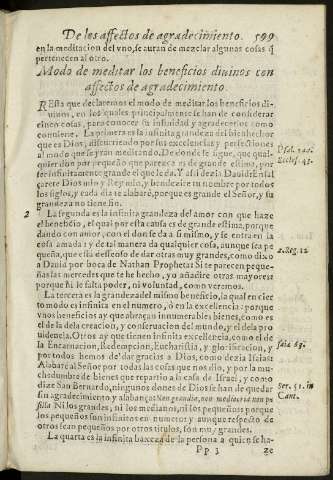 De los affectos de agradecimiento. 599
en la meditacion del vno, se auran de mezclar algunas cosas q̃
pertenecen al otro.
Modo de meditar los beneficios diuinos con
affectos de agradecimiento.
REsta que declaremos el modo de meditar los beneficios di-
uinos, en los quales principalmente se han de considerar
cinco cosas, para conocer su infinidad, y agradecerlos como
conuiene. La primera es la infinita grandeza del bienhechor
que es Dios, discurriendo por sus excelencias y perfectiones
al modo que se yran meditando. De donde se sigue, que qual-
quier don por pequeño que parezca es de grande estima, por
ser infinitamente grande el que le da. Y assi dezia Dauid: Ensal
çarete Dios mio y Rey mio, y bendezire tu nombre por todos
los siglos, y cada dia te alabarè, porque es grande el Señor, y su
grandeza no tiene fin.
Psal. 144.
Eccles. 43.
2 La segunda es la infinita grandeza del amor con que haze
el beneficio, el qual por esta causa es de grande estima, porque
dando con amor, con el don se da a si mismo, y se entra en la
cosa amada: y de tal manera da qualquier cosa, aunque sea pe
queña, que està desseoso de dar otras muy grandes, como dixo
a Dauid por boca de Nathan Propheta: Si te parecen peque-
ñas las mercedes que te he hecho, yo añadire otras mayores:
porque ni le falta poder, ni voluntad, como veremos.
2. Reg. 12
La tercera es la grandeza del mismo beneficio, la qual en cier
to modo es infinita en el numero, ò en la excelencia: porque
vnos beneficios ay que abraçan innumerables bienes, como es
el de la creacion, y conseruacion del mundo, y el de la pro
uidencia. Otros ay que tienen infinita excelencia, como el de
la Encarnacion, Redempcion, Eucharistia, y glorificacion, y
por todos hemos de dar gracias a Dios, como dezia Isaias:
Alabarè al Señor por todas las cosas que nos dio, y por la mu-
chedumbre de bienes que repartio a la casa de Israel, y como
dize San Bernardo, ningunos dones de Dios se han de quedar
sin agradecimiento y alabança: Non grandia, non mediocria non pu
silla. Ni los grandes, ni los medianos, ni los pequeños: porque
los pequeños son infinitos en numero: y aunque respecto de
otros sean pequeños por otros titulos, son muy grandes.
Isaia 63.
Ser. 51. in
Cant.
La quarta es la infinita baxeza de la persona a quien se ha-
Pp 3 ze